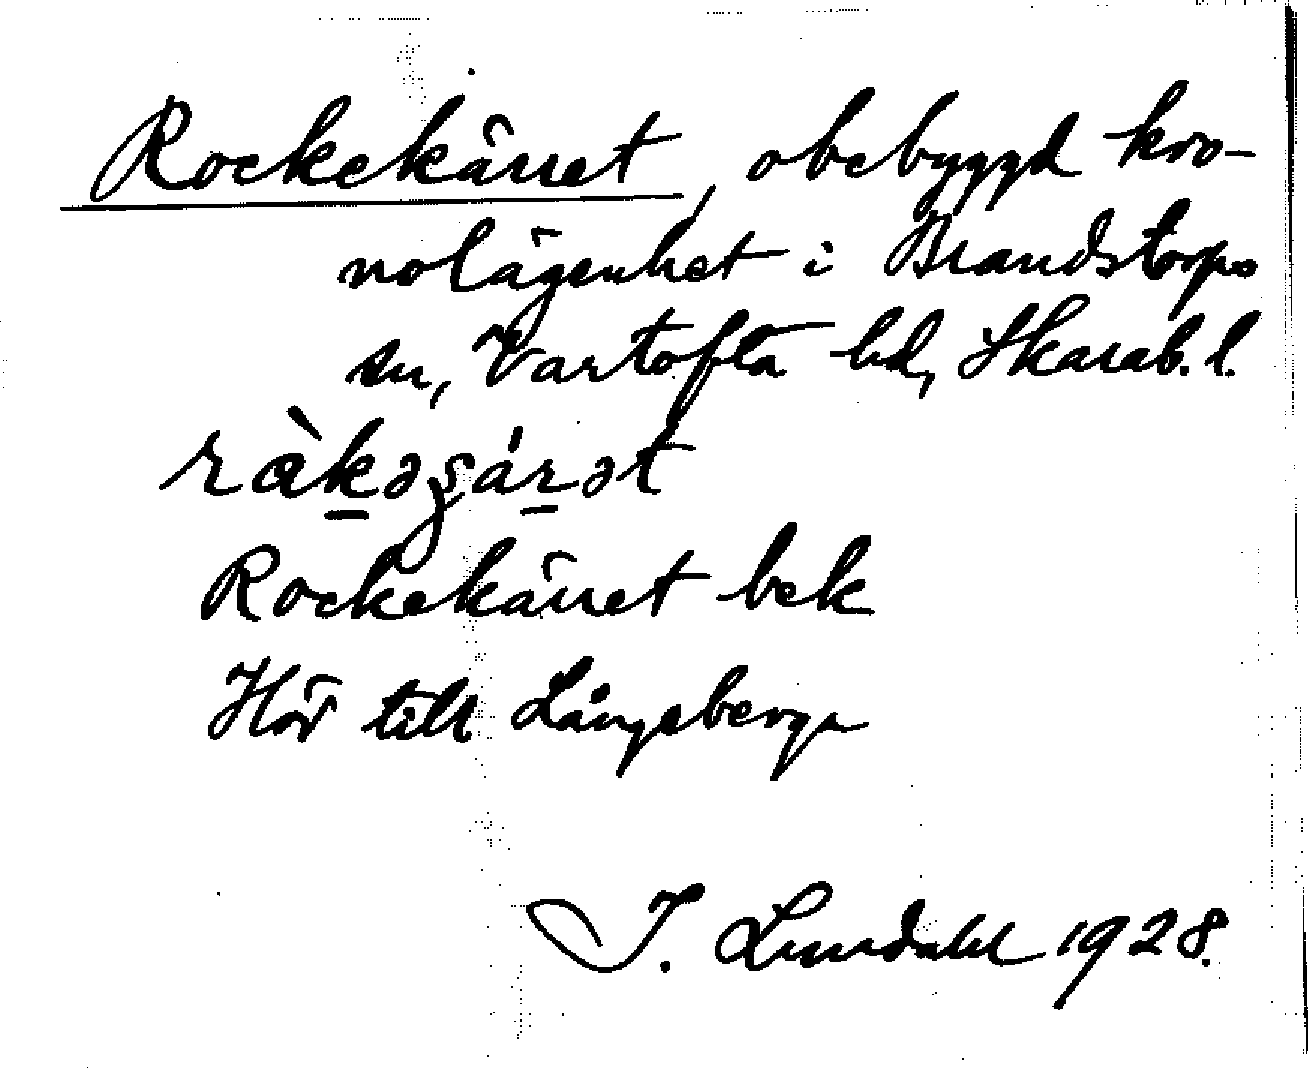 Rockekärret, obebyggd kro-
nolägenhet i Brandstorps
sn, Vartofta hd, Skarab. l.
ràkəʂárət
Rockekärret bek
Hör till Långeberga
I. Lundahl 1928.